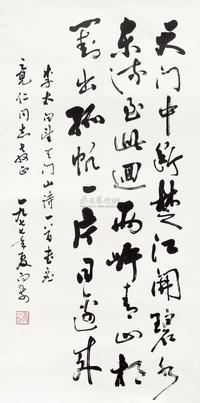 天门中断楚江开碧水
东流至此迴两岸青山相
对出孤帆一片日边来
李太白望天门山诗一首书应
竟仁同志教正
一九七七年夏